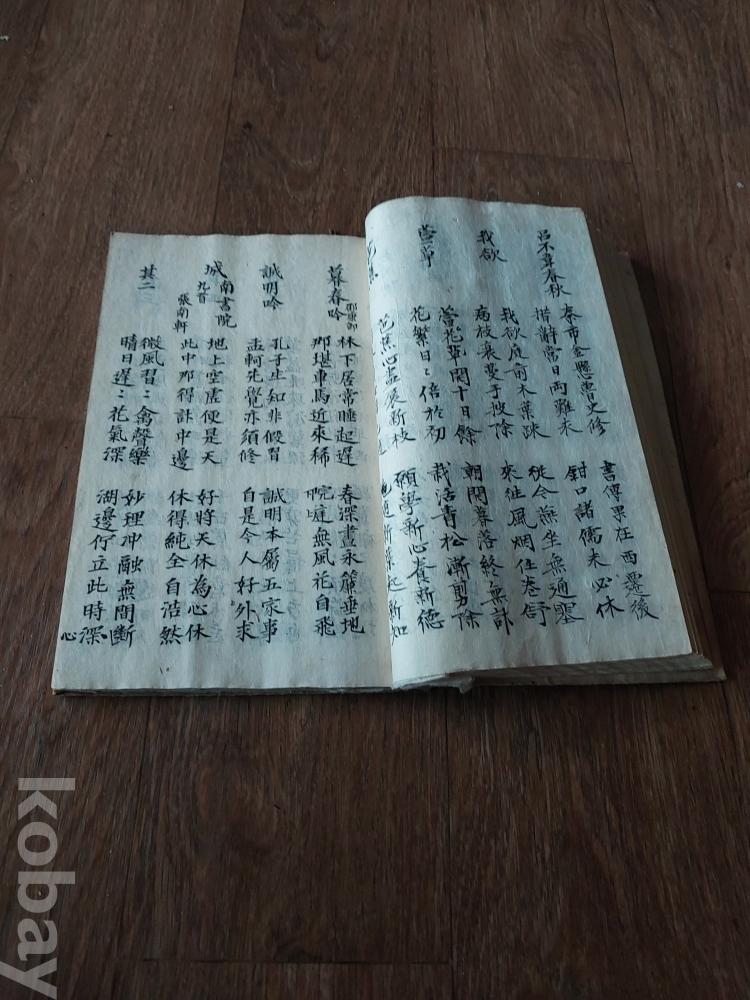 呂不韋春秋
秦市金懸魯史修
書傳果在西遷後
措辭當日兩難未
鉗口諸儒未必休
我欲
我欲庭前木葉踈
從今無坐無通塞
病枝衰蔓手披除
來往風烟任卷舒
營花草
營花草開十日餘
朝開暮落終無計
花繁日〻倍於初
栽活靑松漸剪除
芭蕉心盡展新枝
願學新心養新德
暮春吟
邵康節
林下居常睡起遲
春深晝永簾垂地
那堪車馬近來稀
晼庭無風花自飛
誠明吟
孔子生知非假習
誠明本屬五家事
孟軻先覺亦須修
自是今人好外求
城南書院
九首
張南軒
地上空虛便是天
好將天休為心休
此中那得計中邊
休得純全自浩然
其二
微風習〻禽聲樂
妙理冲融無間斷
晴日遲〻花氣深
湖邊佇立此時深
心
kobay